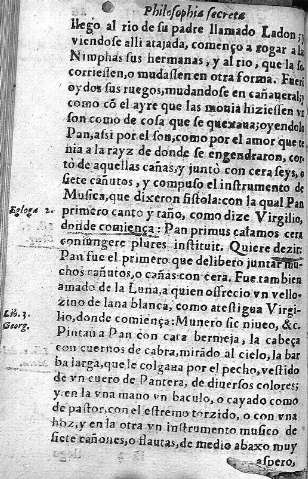 Philosophia secreta
llego al rio de su padre llamado Ladon, y
viendose alli atajada, començo a rogar a la
Nimphas sus hermanas, y al rio, que la so
corriessen, o mudassen en otra forma. Fuerõ
oydos sus ruegos, mudandose en cañaueral: y
como cõ el ayre que las mouia hiziessen vn
son como de cosa que se quexaua; oyendolo
Pan, assi por el son, como por el amor que te
nia a la rayz de donde se engendraron, cor
tò de aquellas cañas, y juntò con cera seys, o
siete cañutos, y compuso el instrumento de
Musica, que dixeron fistola: con la qual Pan
Egloga 2. primero canto y taño, como dize Virgilio,
donde comiença: Pan primus calamos cera
coniungere plures instituit. Quiere dezir:
Pan fue el primero que deliberò juntar mu
chos cañutos, o cañas con cera. Fue tambien
amado de la Luna, a quien offrecio vn vello
zino de lana blanca, como atestigua Virgi-
Lib. 3. Georg. lio, donde comiença: Munero sic niueo, &c.
Pintauã a Pan con cara bermeja, la cabeça
con cuernos de cabra, mirãdo al cielo, la bar
ba larga, que le colgaua por el pecho, vestido
de vn cuero de Pantera, de diuersos colores;
y en la vna mano vn baculo, o cayado como
de pastor, con el estremo torzido, o con vna
hoz, y en la otra vn instrumento musico de
siete cañones, o flautas, de medio abaxo muy
aspero,